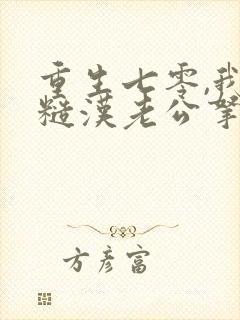 重生七零,我
糙漢老公寧
方彥富